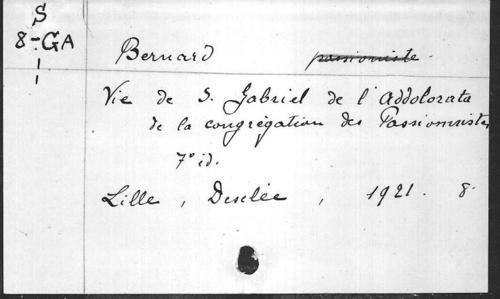 S
8-GA
Bernard passioniste.
Vie de S. Gabriel de l'Addolorata
de la congrégation des Passionnistes
7° éd.
Lille, Desclée, 1921. 8.